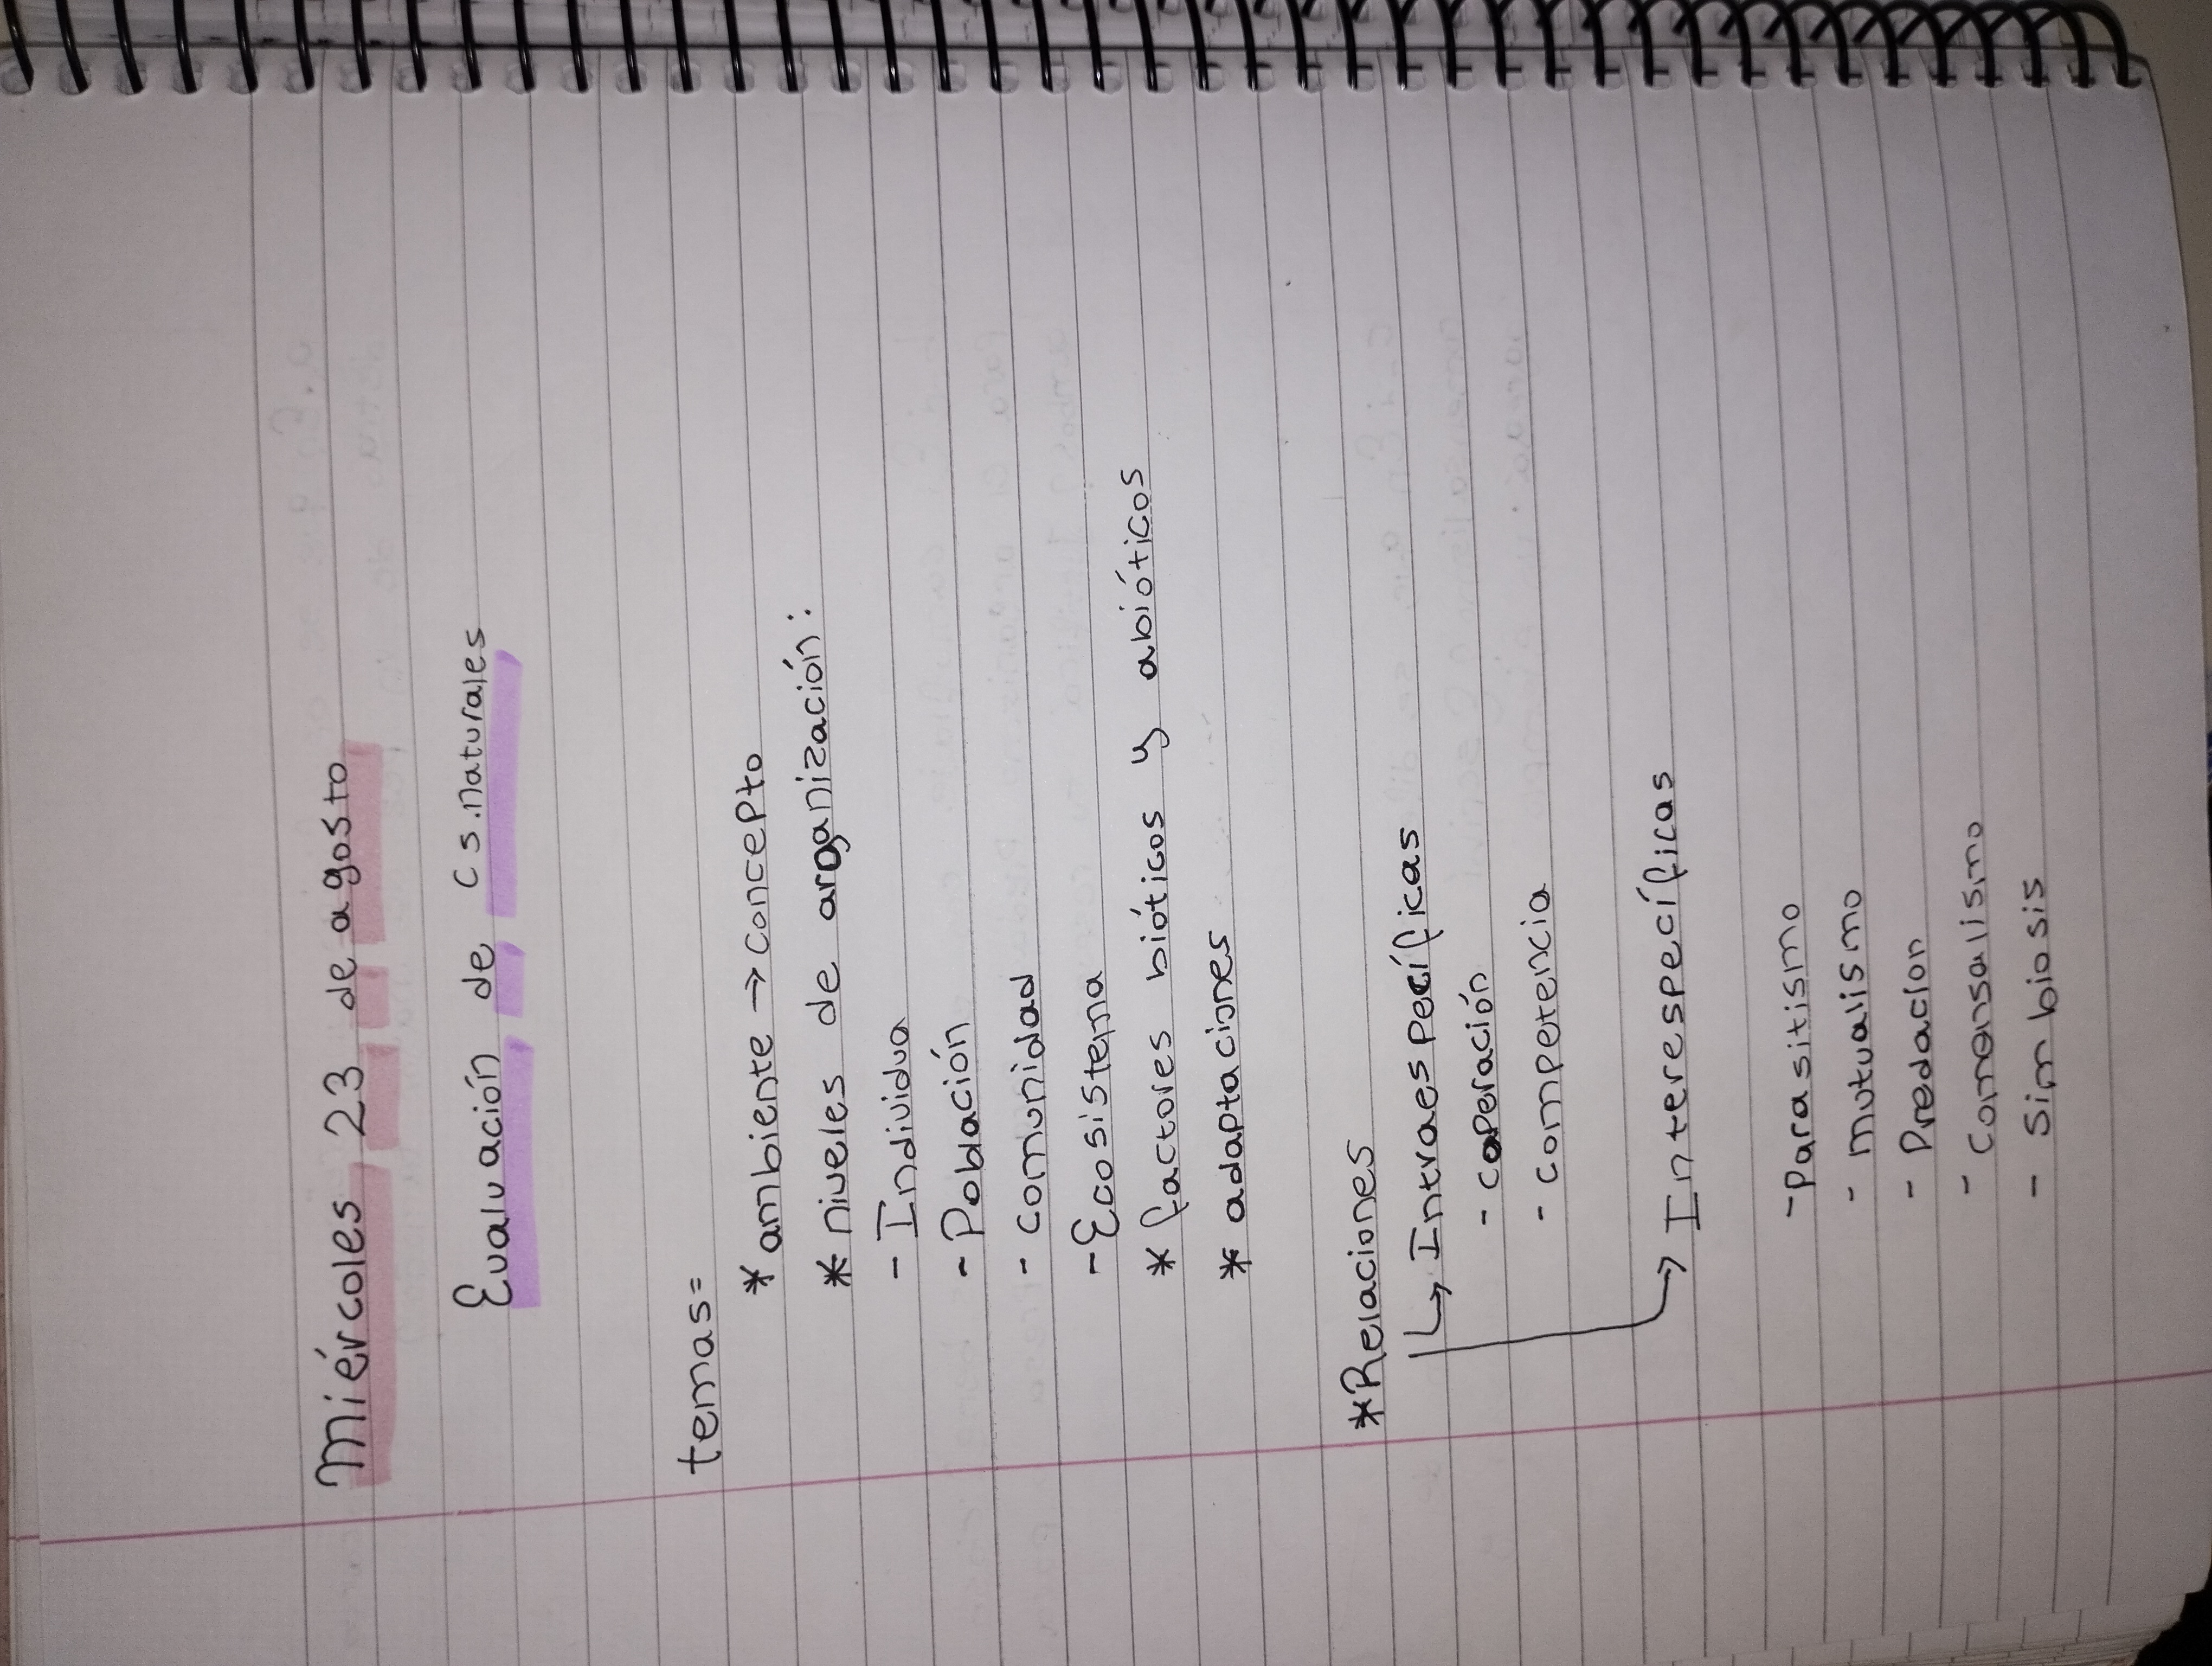 Miércoles 23 de agosto
Evaluación de cs.naturales
temas=
* ambiente → concepto
* niveles de arganización:
- Individuo
- Población
- comunidad
- Ecosistema
* factores bióticos y abióticos
* adaptaciones
*Relaciones
↳ Intraespecíficas
- coperación
- competencia
→ Interespecíficas
- Parasitismo
- mutualismo
- Predacion
- comensalismo
- Simbiosis